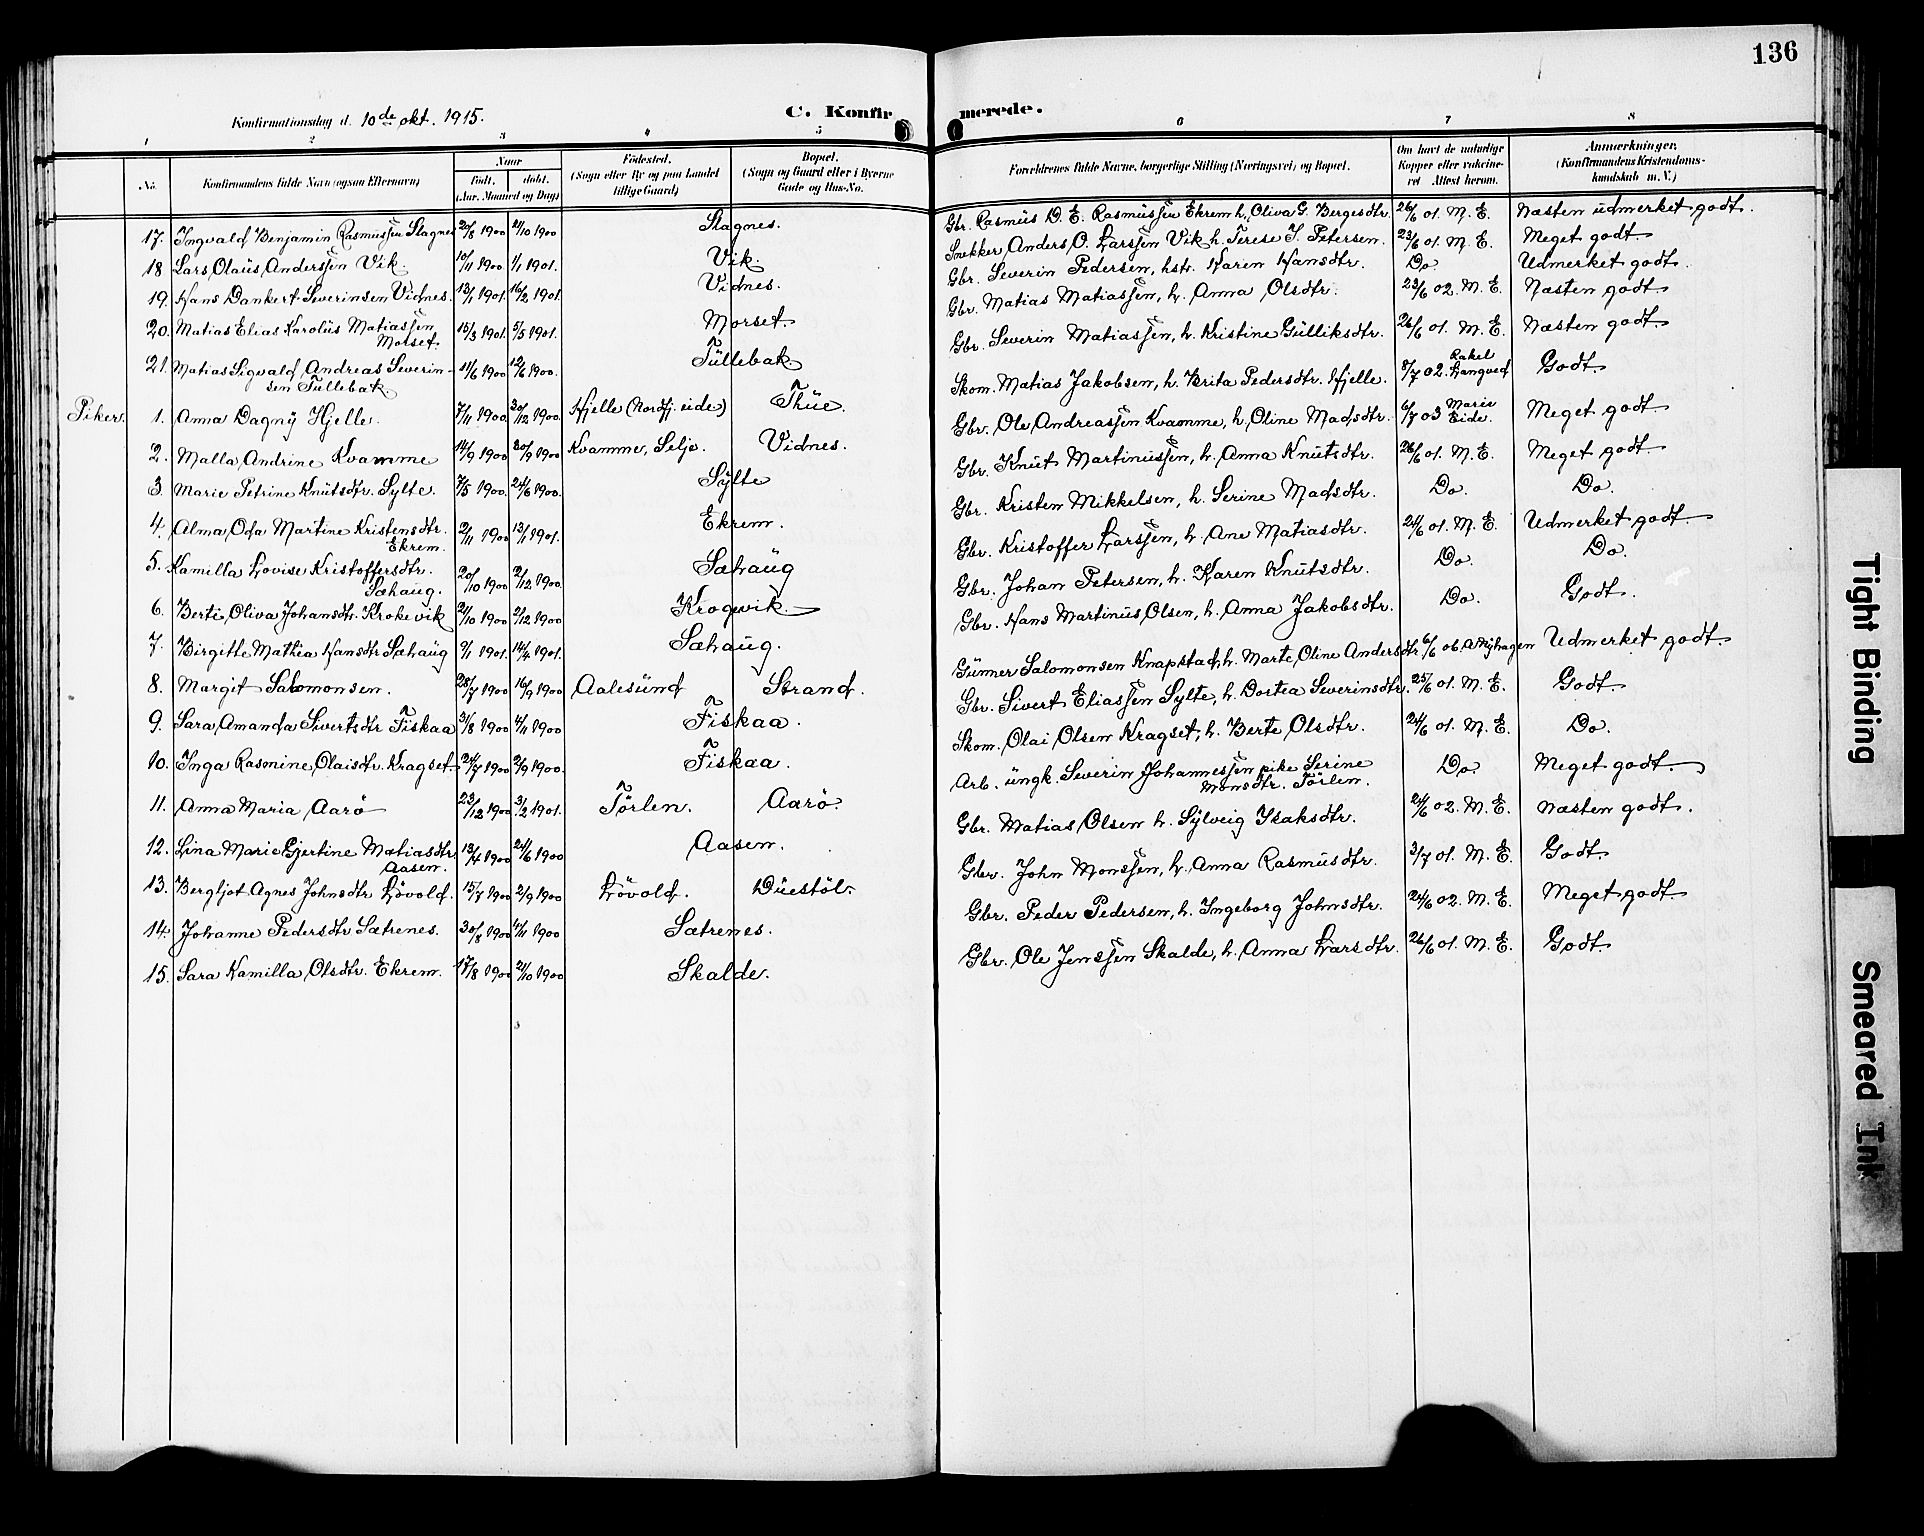 136
Konfirmationsdag d. 10de okt. 1915.
C. Konfirmerede.
1 2 3 4 5 6 7 8
No.
Konfirmandens fulde Navn (ogsaa Efternavn)
Naar
født. døbt.
(Aar, Maaned og Dag)
Fødested.
(Sogn eller By og paa Landet
tillige Gaard)
Bopæl.
(Sogn og Gaard eller i Byerne
Gade og Hus-No.
Forældrenes fulde Navne, borgerlige Stilling (Næringsvei) og Bopæl.
Om havt de naturlige
Kopper eller vakcineret.
Attest herom.
Anmærkninger.
(Konfirmandens Kristendomskundskab
m. V.)
17. Ingvald Benjamin Rasmussen Slagnes 20/8 1900 21/10 1900 Slagnes. Gbr. Rasmus D. E. Rasmussen Ekrem h. Oliva G. Bergesdtr. 26/6 01. M. E. Næsten udmerket godt.
18 Lars Olaus Anderssen Vik 10/11 1900 1/1 1901. Vik. Snekker Anders O. Larssen Vik h. Terese J. Petersen. 23/6 01. M. E. Meget godt
19. Hans Dankert Severinsen Vidnes. 13/1 1901. 16/2 1901. Vidnes. Gbr. Severin Pedersen, hstr. Karen Hansdtr. Do Udmerket godt.
20. Matias Elias Karolus Matiassen
Morset. 15/3 1901. 5/5 1901. Morset Gbr. Matias Matiassen, h. Anna Olsdtr. 23/6 02. M. E. Næsten godt
21. Matias Sigvald Andreas Severin-
sen Tullebak 11/6 1900 12/6 1900. Tullebak Gbr. Severin Matiassen, h. Kristine Gulliksdtr. 26/6 01. M. E. Næsten godt.
Piker. 1. Anna Dagny Hjelle. 7/11 1900. 30/12 1900. Hjelle (Nordfj. eide) Thue. Skom. Matias Jakobsen, h. Brita Pedersdtr. Hjelle. 8/7 02. Rakel Langved Godt.
2. Malla Andrine Kvamme 14/9 1900 30/9 1900 Kvamme, Selje. Vidnes. Gbr. Ole Andreassen Kvamme, h. Oline Madsdtr. 6/7 03 Marie Eide. Meget godt
3. Marie Petrine Knutsdtr. Sylte. 7/5 1900. 24/6 1900. Sylte Gbr. Knut Martinussen, h. Anna Knutsdtr. 26/6 01. M. E. Meget godt.
4. Alma Oda Martine Kristensdtr.
Ekrem. 2/11 1900 13/1 1901. Ekrem. Gbr. Kristen Mikkelsen, h. Serine Madsdtr. Do. Do.
5. Kamilla Lovise Kristoffersdtr.
Sæhaug. 20/10 1900 2/12 1900. Sæhaug Gbr. Kristoffer Larssen, h. Ane Matiasdtr. 24/6 01. M. E. Udmerket godt.
6. Berte Oliva Johansdtr. Krokevik 21/10 1900 2/12 1900 Krogevik. Gbr. Johan Petersen, h. Karen Knutsdtr. Do. Do.
7. Birgitte Mathea Hansdtr Sæhaug 9/1 1901. 14/4 1901. Sæhaug. Gbr. Hans Martinus Olsen, h. Anna Jakobsdtr. Do. Godt.
8. Margit Salomonsen. 28/7 1900 16/9 1900 Aalesund Strand. Gunner Salomonsen Knapstad, h. Marte Oline Andersdtr. 6/6 06. A Nyhagen Udmerket godt.
9. Sara Amanda Sivertsdtr Fiskaa 31/8 1900 4/11 1900 Fiskaa. Gbr. Sivert Eliassen Sylte, h. Dortea Severinsdtr. 25/6 01. M. E. Godt.
10. Inga Rasmine Olaisdtr. Kragset. 24/7 1900 2/9 1900. Fiskaa. Skom. Olai Olsen Kragset, h. Berte Olsdtr. 24/6 01. M. E. Do.
11. Anna Maria Aarö 23/12 1900 3/2 1901. Törlen. Aarö. Arb. ungk. Severin Johannessen pike Serine
Monsdtr. Törlen. Do. Meget godt.
12. Lina Marie Gjertine Matiasdtr.
Aasen. 13/4 1900 24/6 1900 Aasen. Gbr. Matias Olsen h. Sylveig Isaksdtr. 24/6 02. M. E. Næsten godt.
13. Bergljot Agnes Johnsdtr. Lövold. 15/7 1900 2/9 1900 Lövold. Duestöl. Gbr. John Monssen, h. Anna Rasmusdtr. 3/7 01. M. E. Godt.
14. Johanne Pedersdtr Sætrenes. 30/8 1900 4/11 1900 Sætrenes. Gbr. Peder Pedersen, h. Ingeborg Johnsdtr. 24/6 02. M. E. Meget godt.
15. Sara Kamilla Olsdtr. Ekrem. 17/8 1900 21/10 1900 Skalde. Gbr. Ole Jenssen Skalde, h. Anna Larsdtr. 26/6 01. M. E. Godt
Tight Binding
Smeared Ink